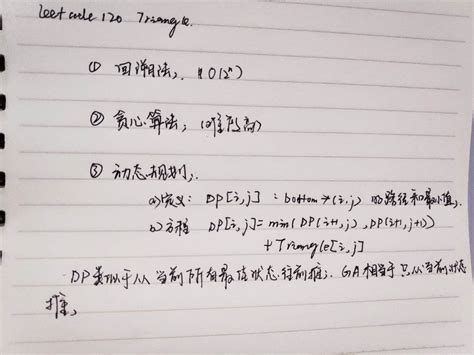 Leetcode 120 Triangle.
① 回溯法, O(2ⁿ)
② 贪心算法,
③ 动态规划,
a) 定义: DP[i,j]: bottom→(i,j) 的路径和最小值,
b) 方程 DP[i,j]= min(DP(i+1,j), DP(i+1,j+1))
+Triangle[i,j]
DP类似于从当前所有最佳状态往前推, GA相当于只从当前状态
推,